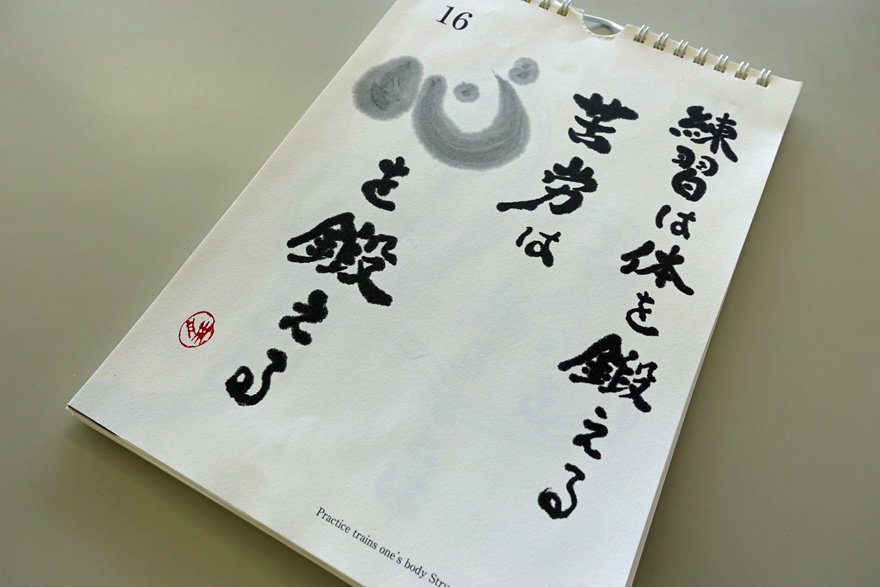 16
練習は体を鍛える
苦労は
心を鍛える
Practice trains one's body